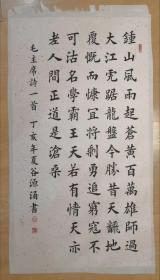 鍾山風雨起蒼黃百萬雄師過
大江虎踞龍盤今勝昔天翻地
覆慨而慷宜將剩勇追窮寇不
可沽名學霸王天若有情天亦
老人間正道是滄桑
毛主席詩一首 丁亥年夏谷源涌書